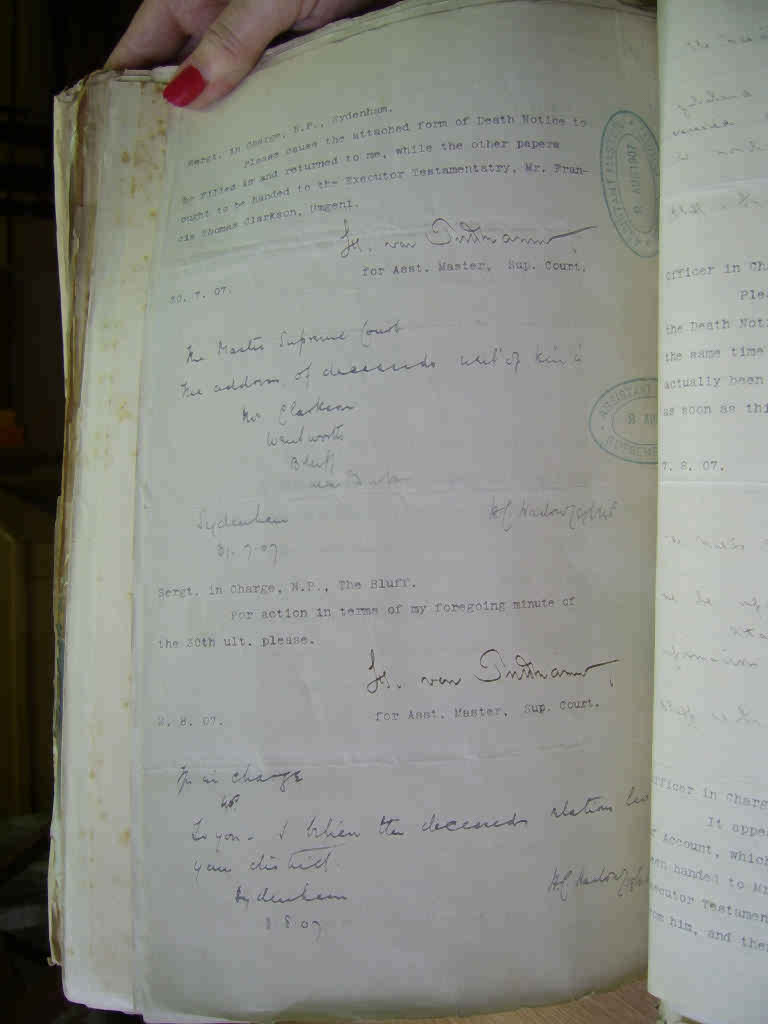 Sergt. in Charge, N.P., Sydenham.
Please cause the attached form of Death Notice to
be filled in and returned to me, while the other papers
ought to be handed to the Executor Testamentatry, Mr. Fran-
cis Thomas Clarkson, Umgeni.
for Asst. Master, Sup. Court.
30. 7. 07.
The Master Supreme Court
The address of deceaseds next of kin is
Mr Clarkson
Wentworth
Bluff
near Durban
Sydenham
31.7.07
Sergt. in Charge, N.P., The Bluff.
For action in terms of my foregoing minute of
the 30th ult. please.
for Asst. Master, Sup. Court.
2. 8. 07.
in charge
To you. I believe the deceaseds relations
your district.
Sydenham
8 8 07
ASSISTANT
8 AUG 1907
ASSISTANT
8 AU
SUPREME
officer in Cha
Plea
the Death Noti
the same time
actually been
as soon as thi
7. 8. 07.
fficer in Charge
It appe
Account, which
een handed to Mr
ecutor Testamen
om him, and the